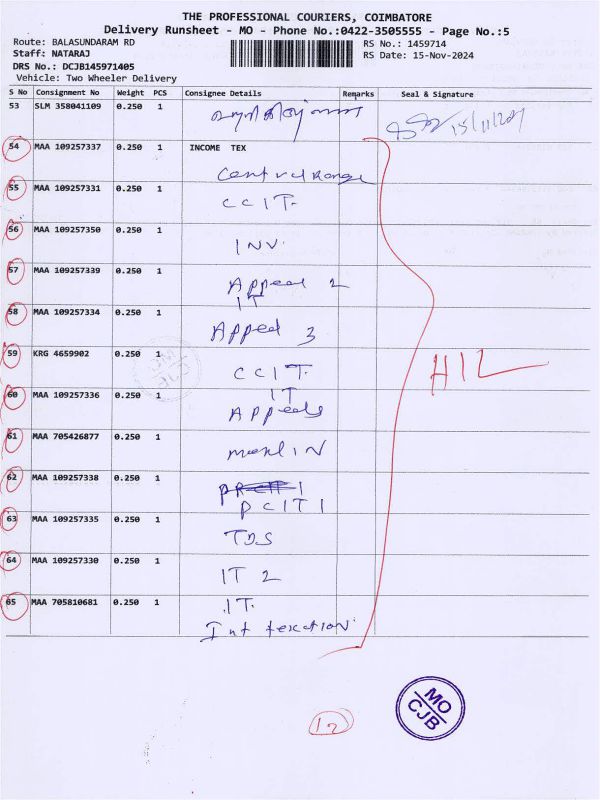 THE PROFESSIONAL COURIERS, COIMBATORE
Delivery Runsheet - MO - Phone No.:0422-3505555 - Page No.:5
Route: BALASUNDARAM RD
RS No.: 1459714
Staff: NATARAJ
RS Date: 15-Nov-2024
DRS No.: DCJB145971405
Vehicle: Two Wheeler Delivery
S No Consignment No Weight PCS Consignee Details Remarks Seal & Signature
53 SLM 358041109 0.250 1 15/11/24
54 MAA 109257337 0.250 1 INCOME TEX
Central Range
55 MAA 109257331 0.250 1
CCIT
56 MAA 109257350 0.250 1
INV.
57 MAA 109257339 0.250 1
Appeal 2
IT
58 MAA 109257334 0.250 1
Appeal 3
59 KRG 4659902 0.250 1
CCIT
60 MAA 109257336 0.250 1 IT
Appeals
61 MAA 705426877 0.250 1
62 MAA 109257338 0.250 1
PCIT 1
63 MAA 109257335 0.250 1
TDS
64 MAA 109257330 0.250 1
IT 2
65 MAA 705810681 0.250 1 IT.
Int texation
12
MO
CJB